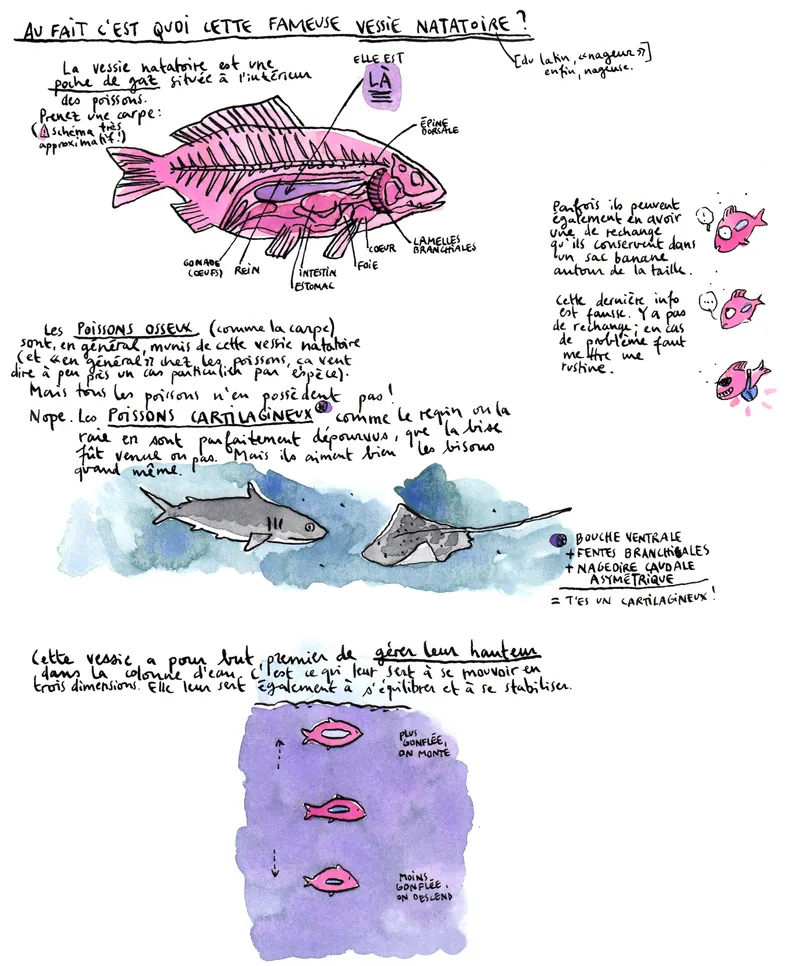 AU FAIT C'EST QUOI CETTE FAMEUSE VESSIE NATATOIRE ?
[du latin, «nageur»]
enfin, nageuse.
La vessie natatoire est une
poche de gaz située à l'intérieur
des poissons.
Prenez une carpe :
(! schéma très
approximatif !)
ELLE EST
LÀ
ÉPINE
DORSALE
LAMELLES
BRANCHIALES
COEUR
FOIE
INTESTIN
ESTOMAC
REIN
GONADE
(OEUFS)
Parfois ils peuvent
également en avoir
une de rechange
qu'ils conservent dans
un sac banane
autour de la taille.
!
Cette dernière info
est fausse. Y a pas
de rechange ; en cas
de problème faut
mettre une
rustine.
...
Les POISSONS OSSEUX (comme la carpe)
sont, en général, munis de cette vessie natatoire
(et «en général» chez les poissons, ça veut
dire à peu près un cas particulier par espèce).
Mais tous les poissons n'en possèdent pas !
Nope. Les POISSONS CARTILAGINEUX comme le requin ou la
raie en sont parfaitement dépourvus, que la bise
fût venue ou pas. Mais ils aiment bien les bisous
quand même.
BOUCHE VENTRALE
+ FENTES BRANCHIALES
+ NAGEOIRE CAUDALE
ASYMÉTRIQUE
= T'ES UN CARTILAGINEUX !
Cette vessie a pour but premier de gérer leur hauteur
dans la colonne d'eau. C'est ce qui leur sert à se mouvoir en
trois dimensions. Elle leur sert également à s'équilibrer et à se stabiliser.
PLUS
GONFLÉE,
ON MONTE
MOINS
GONFLÉE,
ON DESCEND